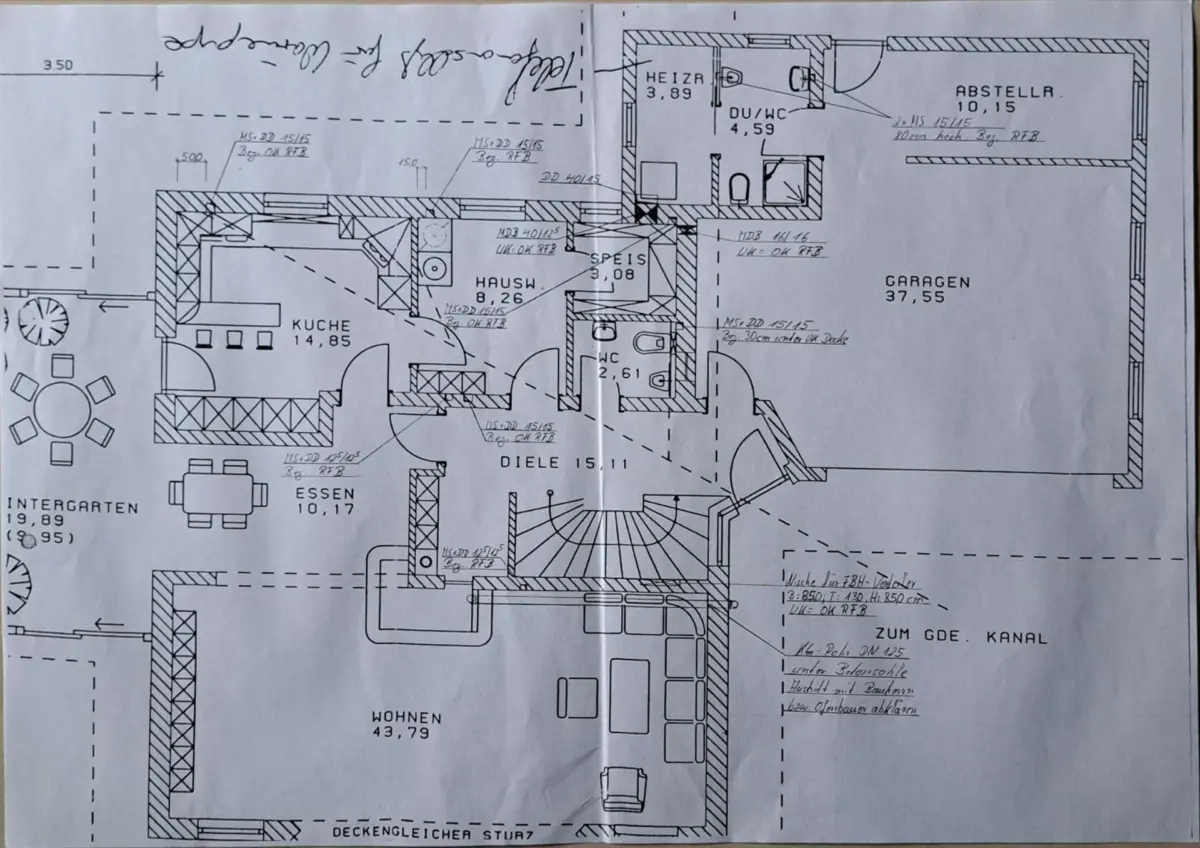 Telefonanschluß für Wärmepumpe
3.50
HEIZR
3,89
DU/WC
4,59
ABSTELLR.
10,15
2x MS 15/15
80cm hoch Bez. RFB
MS+DD 15/15
Bez. OK RFB
500
150
MS+DD 15/15
Bez. RFB
DD 40/15
MDB 40/12⁵
UK=OK RFB
MDB 16/16
UK= OK RFB
SPEIS
3,08
HAUSW.
8,26
MS+DD 15/15
Bez. OK RFB
GARAGEN
37,55
KUCHE
14,85
MS+DD 15/15
Bez. 30cm unter UK Decke
WC
2,61
MS+DD 15/15
Bez. OK RFB
MS+DD 12⁵/12⁵
Bez. RFB
DIELE 15,11
ESSEN
10,17
INTERGARTEN
19,89
(9,95)
MS+DD 12⁵/12⁵
Bez. RFB
Nische für FBH-Verteiler
B=850; T= 130, H= 850 cm
UK= OK RFB
ZUM GDE. KANAL
Rohr DN 125
unter Betonsohle
mit Bauherrn
bzw. Ofenbauer abklären
WOHNEN
43,79
DECKENGLEICHER STURZ